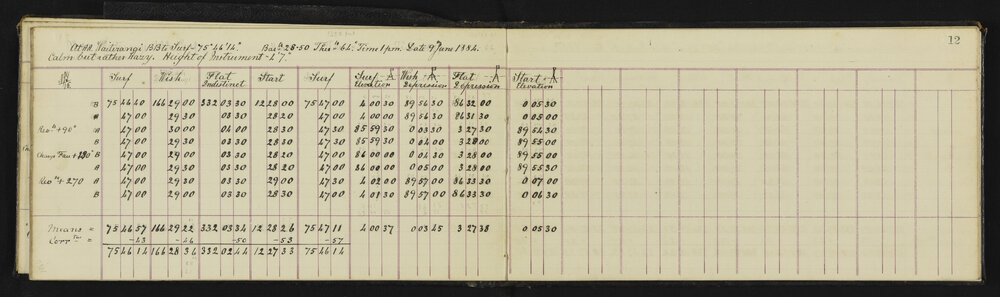 12
At AA. Wailirangi BB to Surf = 75° 46' 14". Bar. 28·50 Ther. 64°. Time 1 p.m. Date 9th June 1884.
Calm but rather hazy. Height of Instrument = 4' 7".
Surf Wish Flat Indistinct Start Surf Surf Elevation Wish Depression Flat Depression Start Elevation
B 75 46 40 166 29 00 332 03 30 12 28 00 75 47 00 4 00 30 89 56 30 86 32 00 0 05 30
A 47 00 29 00 03 30 28 20 47 00 4 00 00 89 56 30 86 31 30 0 05 00
Rev. + 90° A 47 00 30 00 04 00 28 30 47 30 85 59 30 0 03 30 3 27 30 89 54 30
B 47 00 29 30 03 30 28 30 47 30 85 59 30 0 04 00 3 28 00 89 55 00
Change Face + 180° B 47 00 29 00 03 30 28 30 47 00 86 00 00 0 04 00 3 28 00 89 55 00
A 47 00 29 30 03 30 28 20 47 00 86 00 00 0 05 00 3 28 00 89 55 30
Rev. + 270 A 47 00 29 30 03 30 29 00 47 30 4 02 00 89 57 00 86 33 30 0 07 00
B 47 00 29 30 03 30 28 30 47 00 4 01 30 89 57 00 86 33 30 0 06 30
Means = 75 46 57 166 29 22 332 03 34 12 28 26 75 47 11 4 00 37 0 03 45 3 27 38 0 05 30
Corr. = -43 -46 -50 -53 -57
75 46 14 166 28 36 332 02 44 12 27 33 75 46 14